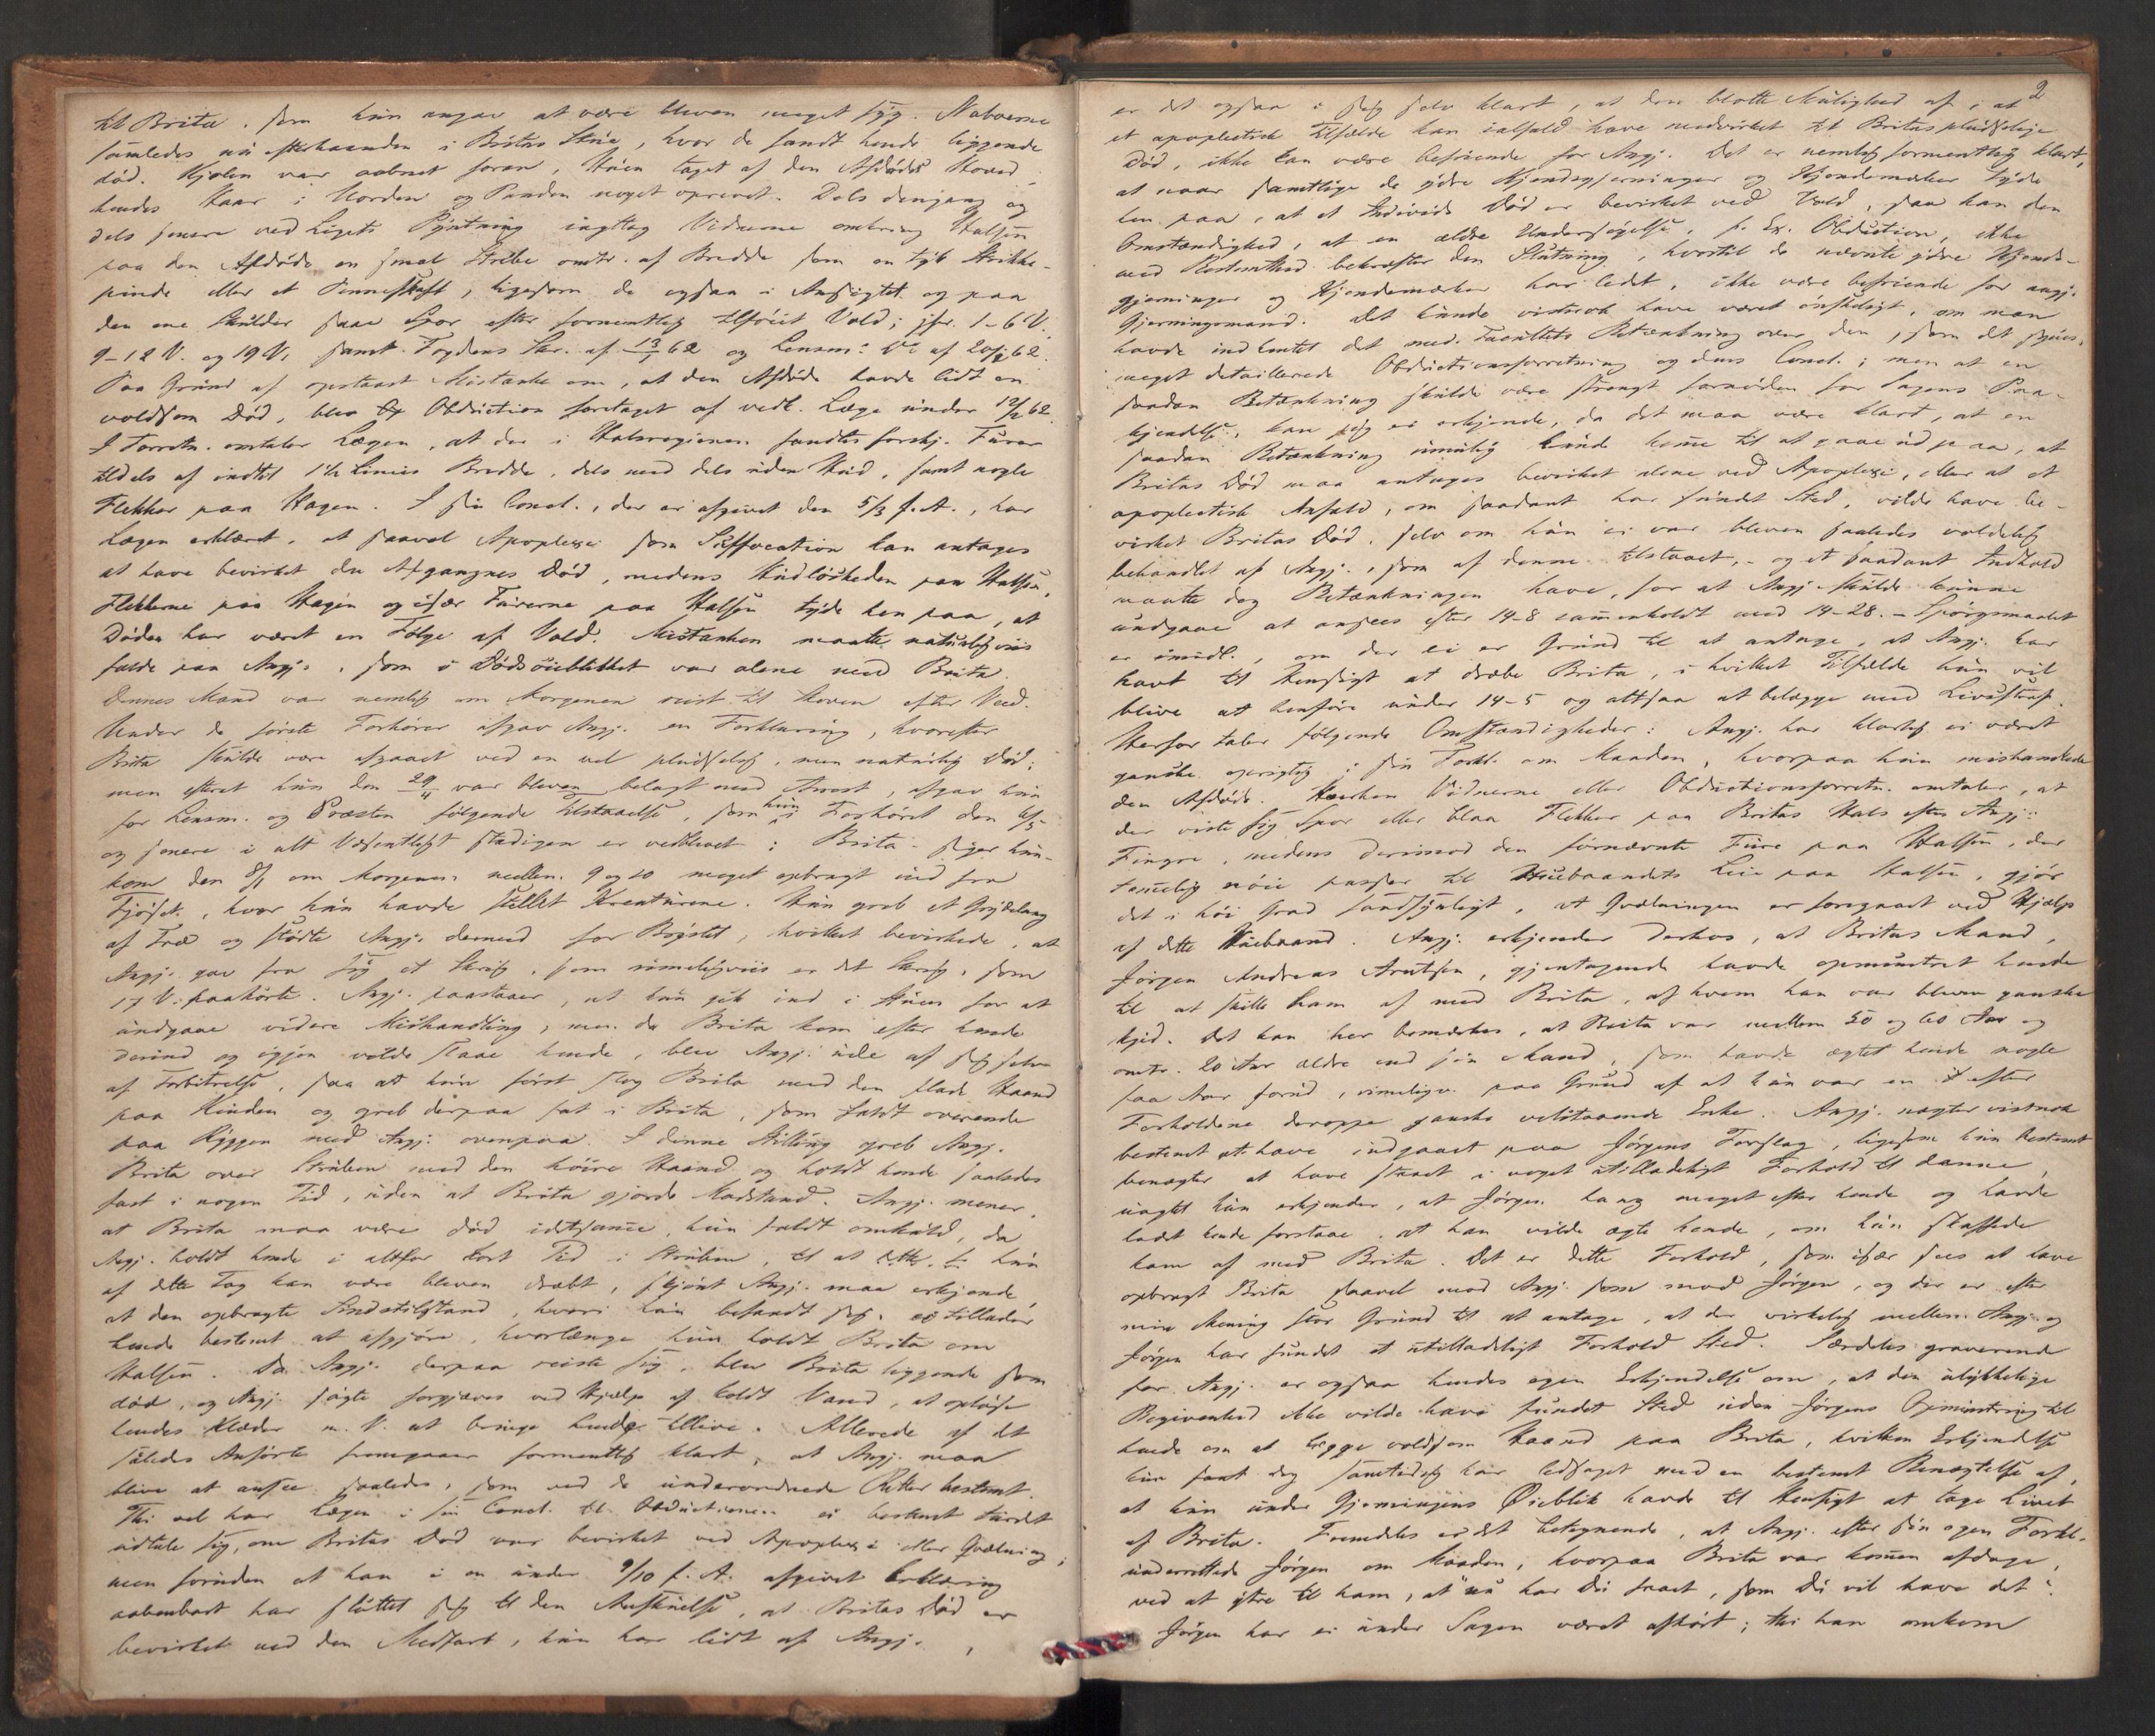 til Brita, som hun angav at være bleven meget syg. Naboerne
samledes nu efterhaanden i Britas Stue, hvor de fandt hende liggende
død. Kjolen var aabnet foran, Huen taget af den Afdødes Hoved,
hendes Haar i Uorden og Panden noget oprevet. Dels dengang og
dels senere ved Ligets Pyntning iagttog Vidnerne omkring Halsen
paa den Afdøde en smal Stribe omtr. af Bredde som en tyk Strikke-
pinde eller et Penneskaft, ligesom de ogsaa i Ansigtet og paa
den ene Skulder saae Spor efter formentlig tilføiet Vold; jfr. 1-6 V.
9-12 V. og 19 V. samt Fogdens Skr. af 13/1 62 og Lensm: Do af 20/1 62.
Paa Grund af opstaaet Mistanke om, at den Afdøde havde lidt en
voldsom Død, blev Obduction foretaget af vedk. Læge under 12/2 62.
I Forretn. omtaler Lægen, at der i Halsregionen fandtes forskj. Furer
tildels af indtil 1½ Linies Bredde, dels med dels uden Hud, samt nogle
Flekker paa Hagen. I sin Concl., der er afgivet den 5/3 f. A., har
Lægen erklæret, at saavel Apoplexi som Suffocation kan antages
at have bevirket den Afgangnes Død, medens Hudløsheden paa Halsen,
Flekkerne paa Hagen og især Furerne paa Halsen tyde hen paa, at
Døden har været en Følge af Vold. Mistanken maatte naturligviis
falde paa Angj., som i Dødsøieblikket var alene med Brita.
Dennes Mand var nemlig om Morgenen reist til Skoven efter Ved.
Under de første Forhører afgav Angj. en Forklaring, hvorefter
Brita skulde være afgaaet ved en vel pludselig, men naturlig Død;
men efterat hun den 29/4 var bleven belagt med Arrest, afgav hun
for Lensm. og Præsten følgende Tilstaaelse, som hun i Forhøret den 6/5
og senere i alt Væsentligt stadigen er vedblevet: Brita - siger hun -
kom den 8/1 om Morgenen mellem 9 og 10 meget opbragt ind fra
Fjøset, hvor hun havde stellet Kreaturene. Hun greb et
af Træ og stødte Angj. dermed for Brystet, hvilket bevirkede, at
Angj. gav fra sig et Skrig, som rimeligviis er det Skrig, som
17 V. paahørte. Angj. paastaaer, at hun gik ind i Stuen for at
undgaae videre Mishandling, men da Brita kom efter hende
derind og igjen vilde slaae hende, blev Angj. ude af sig selv
af Forbitrelse, saa at hun først slog Brita med den flade Haand
paa Kinden og greb derpaa fat i Brita, som faldt overende
paa Ryggen med Angj. ovenpaa. I denne Stilling greb Angj.
Brita over Struben med den høire Haand og holdt hende saaledes
fast i nogen Tid, uden at Brita gjorde Modstand. Angj. mener,
at Brita maa være død idetsamme, hun faldt omkuld, da
Angj. holdt hende i altfor kort Tid i Struben, til at hun
af dette Tag kan være bleven dræbt, skjønt Angj. maa erkjende,
at den opbragte Sindstilstand, hvori hun befandt sig, ei tillader
hende bestemt at afgjøre, hvorlænge hun holdt Brita om
Halsen. Da Angj. derpaa reiste sig, blev Brita liggende som
død, og Angj. søgte forgjæves ved Hjælp af koldt Vand, at opløse
hendes Klæder m. V. at bringe hende tillive. Allerede af det
saaledes Anførte fremgaaer formentlig klart, at Angj. maa
blive at ansee saaledes, som ved de underordnede Retter bestemt.
Thi vel har Lægen i sin Concl. til Obductionen ei bestemt turdet
udtale sig, om Britas Død var bevirket ved Apoplexi eller Qvælning;
men foruden at han i en under 9/10 f. A. afgivet Erklæring
aabenbart har sluttet sig til den Anskuelse, at Britas Død er
bevirket ved den Medfart, hun har lidt af Angj.,
2
er det ogsaa i sig selv klart, at den blotte Mulighed af, at
et apoplectisk Tilfælde kan ialfald have medvirket til Britas pludselige
Død, ikke kan være befriende for Angj. Det er nemlig formentlig klart,
at naar samtlige de ydre Kjendsgjerninger og Kjendemærker tyde
hen paa, at et Individs Død er bevirket ved Vold, saa kan den
Omstændighed, at en ældre Undersøgelse, f. Ex. Obduction, ikke
med Bestemthed bekræfter den Slutning, hvortil de nævnte ydre Kjends-
gjerninger og Kjendemærker har ledet, ikke være befriende for angj.
Gjerningsmand. Det kunde vistnok have været ønskeligt, om man
havde indhentet det med. Facultets Betænkning over den, som det synes,
meget detaillerede Obductionsforretning og dens Concl.; men at en
saadan Betænkning skulde være strengt fornøden for Sagens Paa-
kjendelse, kan jeg ei erkjende, da det maa være klart, at en
saadan Betænkning umulig kunde komme til at gaae ud paa, at
Britas Død maa antages bevirket alene ved Apoplexi, eller at et
apoplectisk Anfald, om saadant har fundet Sted, vilde have be-
virket Britas Død, selv om hun ei var bleven saaledes voldelig
behandlet af Angj., som af denne tilstaaet, - og et saadant Indhold
maatte dog Betænkningen have, for at Angj. skulde kunne
undgaae at ansees efter 14-8 sammenholdt med 14-28. - Spørgsmaalet
er imidl., om der ei er Grund til at antage, at Angj. har
havt til Hensigt at dræbe Brita, i hvilket Tilfælde hun vil
blive at henføre under 14-5 og altsaa at belægge med Livsstraf.
Herfor taler følgende Omstændigheder: Angj. har klarlig ei været
ganske oprigtig i sin Forkl. om Maaden, hvorpaa hun mishandlede
den Afdøde. Hverken Vidnerne eller Obductionsforretn. omtaler, at
der viste sig Spor eller blaa Flekker paa Britas Hals efter Angj:
Fingre, medens derimod den fornævnte Fure paa Halsen, der
temmelig nøie passer til Huebaandets Leie paa Halsen, gjør
det i høi Grad sandsynligt, at Qvælningen er foregaaet ved Hjælp
af dette Huebaand. Angj. erkjender derhos, at Britas Mand,
Jørgen Andreas Arntsen, gjentagende havde opmuntret hende
til at skille ham af med Brita, af hvem han var bleven ganske
kjed. Det kan her bemærkes, at Brita var mellem 50 og 60 Aar og
omtr. 20 Aar ældre end sin Mand, som havde ægtet hende nogle
faa Aar forud, rimeligv. paa Grund af at hun var en efter
Forholdene deroppe ganske velstaaende Enke. Angj. nægter vistnok
bestemt at have indgaaet paa Jørgens Forslag, ligesom hun bestemt
benægter at have staaet i noget utilladeligt Forhold til denne,
uagtet hun erkjender, at Jørgen hang meget efter hende og havde
ladet hende forstaae, at han vilde ægte hende, om hun skaffede
ham af med Brita. Det er dette Forhold, som især sees at have
opbragt Brita saavel mod Angj. som mod Jørgen, og der er efter
min Mening stor Grund til at antage, at der virkelig mellem Angj. og
Jørgen har fundet et utilladeligt Forhold Sted. Særdeles graverende
for Angj. er ogsaa hendes egen Erkjendelse om, at den ulykkelige
Begivenhed ikke vilde have fundet Sted uden Jørgens Opmuntring til
hende om at lægge voldsom Haand paa Brita, hvilken Erkjendelse
hun samt dog samtidig har ledsaget med en bestemt Benægtelse af,
at hun under Gjerningens Øieblik havde til Hensigt at tage Livet
af Brita. Fremdeles er det betegnende, at Angj. efter sin egen Forkl.
underrettede Jørgen om Maaden, hvorpaa Brita var kommen afdage,
ved at ytre til ham, at "nu har Du faaet, som Du vil have det".
Jørgen har ei under Sagen været afhørt; thi han omkom